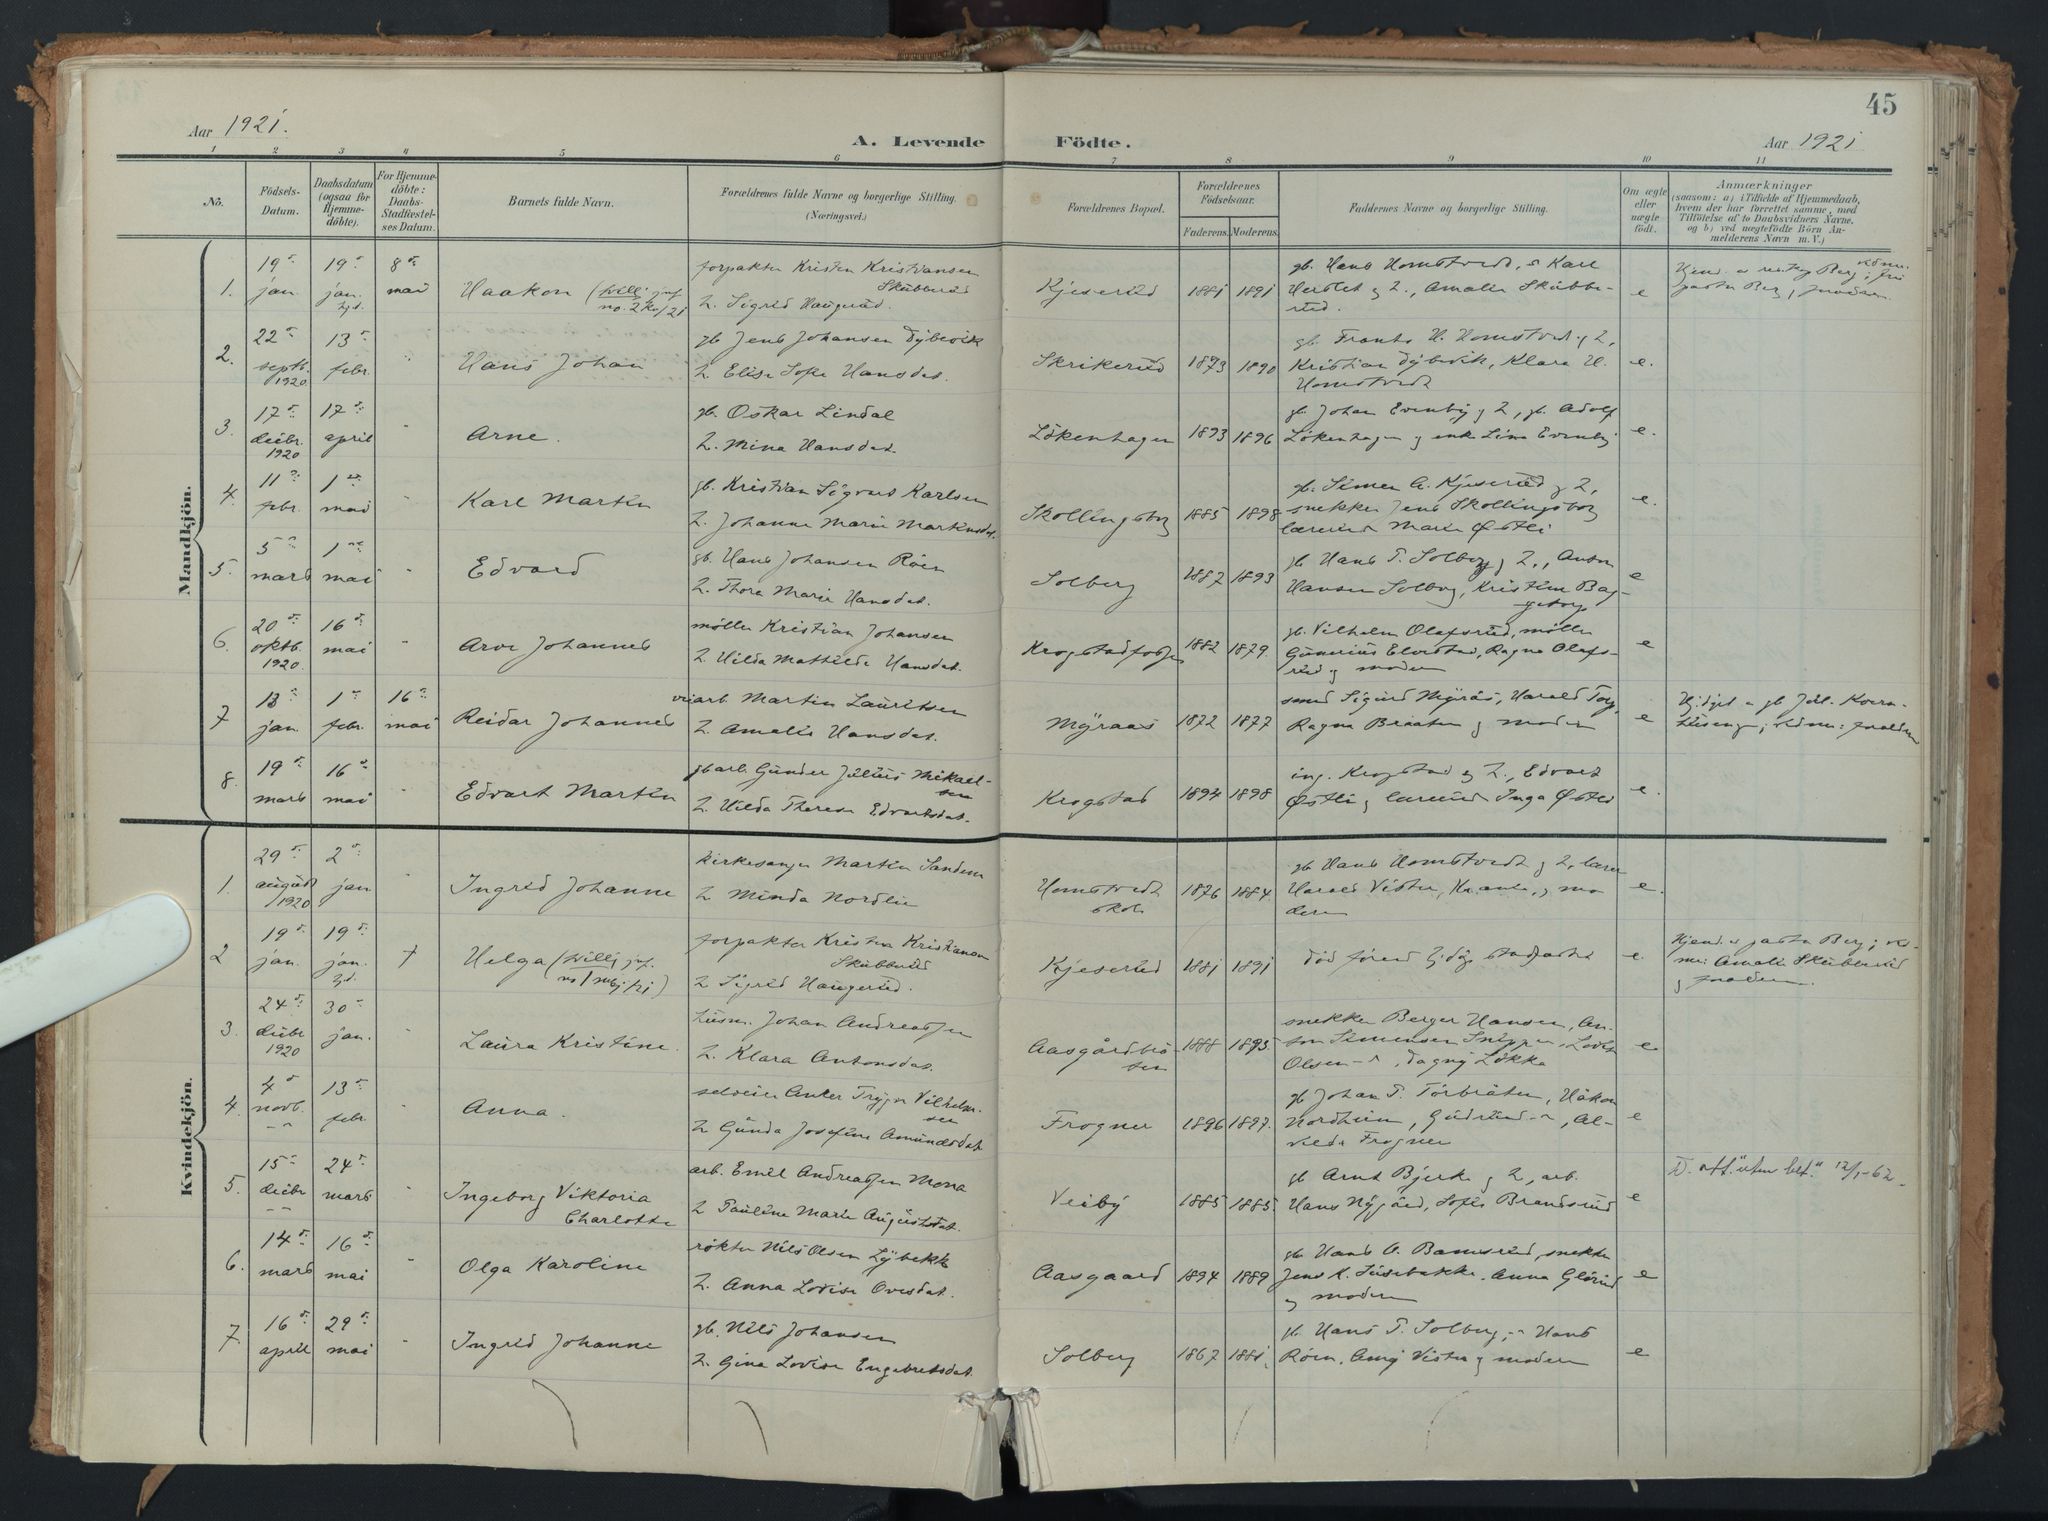 45
Aar 1921.
A. Levende Födte.
Aar 1921
1 2 3 4 5 6 7 8 9 10 11
No.
Födsels-
Datum.
Daabsdatum
(ogsaa for
Hjemme-
döbte).
For Hjemme-
döbte:
Daabs-
Stadfæstel-
ses Datum.
Barnets fulde Navn.
Forældrenes fulde Navne og borgerlige Stilling.
(Næringsvei.)
Forældrenes Bopæl.
Forældrenes
Födselsaar.
Faderens. Moderens.
Faddernes Navne og borgerlige Stilling.
Om ægte
eller
uægte
födt.
Anmærkninger
(saasom: a) i Tilfælde af Hjemmedaab,
hvem der har forrettet samme, med
Tilföielse af to Daabsvidners Navne,
og b) ved uægtefödte Börn An-
melderens Navn m. V.)
Mandkjön.
1.
19
jan.
19
jan.
8
mai
Haakon (tvilli
no. 2 kv/21
forpakter Kristen Kristiansen
Skubberud
h. Sigrid Haugerud.
Kjeserud
1881 1891
gb. Hans Homstvedt, Karl
h., Amalie Skubbe-
rud.
e
2.
22
septb.
1920
13
febr.
Hans Johan
gb Jens Johansen Dybevik
h. Elise Sofie Hansdat.
Skrikerud
1873 1890
gb. Frants H. Homstvedt og h,
Kristian Dybevik, Klara H.
Homstvedt
e.
3.
17
decbr.
1920
17
april
Arne.
gb. Oskar Lindal
h. Mina Hansdat.
Lökenhagen
1893 1896
gb. Johan Evenby og h, gb. Adolf
Lökenhagen og enke Lina Evenby
e.
4.
11
febr.
1
mai
Karl Martin
gb. Kristian Sigvart Karlsen
h. Johanne Marie Martinsdat.
Skollingsborg
1885 1898
gb. Simen A. Kjeserud og h,
snekker Jens Skollingsborg
Marie Østli
e.
5.
5
mars
1
mai
Edvard
gb. Hans Johansen Röen
h. Thora Marie Hansdat.
Solberg
1887 1893
gb Hans T. Solberg og h., Anton
Hansen Solberg, Kristine Bag-
e
6.
20
oktb.
1920
16
mai
Arve Johannes
möller Kristian Johansen
h. Hilda Mathilde Hansdat.
Krogstadfossen
1882 1879.
gb. Vilhelm Olafsrud, möller
Gunerius Elvestad, Ragna Olafs-
rud og moderen
e
7
13
jan.
1
febr.
16
mai
Reidar Johannes
veiarb. Martin Lauritsen
h. Amalie Hansdat.
Myraas
1872 1877
smed Sigurd Myrås, Harald Torp,
Ragna Braaten og moderen
e
8.
19
mars
16
mai
Edvart Martin
gbarb. Gunder Julius Mikael-
sen
h. Hilda Therese Edvartsdat.
Krogstad
1894 1898
ing. Krogstad og h., Edvart
Østli og Inga Østli
e.
Kvindekjön.
1.
29
august
1920
2
jan
Ingrid Johanne
kirkesanger Martin Sandem
h Minda Nordlie
Homstvedt
skole
1876 1884.
gb Hans Homstvedt og h, lærer
Harald Vister, og mo
deren
e.
2
19
jan.
19
jan.
†
Helga (tvilli
forpakter Kristen Kristiansen
Skubberud
h Sigrid Haugerud.
Kjeserud
1881 1891
död
e.
pastor Berg;
Amalie Skubberud
3.
24
decbr
1920
30
jan.
Laura Kristine.
husm. Johan Andreassen
h. Klara Antonsdat.
Aasgårdbrå-
ten
1888 1895.
snekker Berger Hansen, An-
ton Simensen
Olsen, Dagny Løkka
e
4.
4
novb.
13
febr.
Anna.
selveier Anker Trygve Vilhelm-
sen
h Gunda Josefine Amundsdat.
Frogner
1896 1897.
gb Johan T. Torbråten, Håkon
Nordheim, Gudrun, Al-
vilda Frogner
e
5.
15
decbr
24
mars
Ingeborg Viktoria
Charlotte
arb. Emil Andreassen Mona
h Pauline Marie Augustdat.
Veiby
1885 1885.
gb Arnt Bjerke og h, arb.
Hans Nygård, Sofie Brandsrud
e
6.
14
mars
16
mai
Olga Karoline
røkter Nils Olsen Lybekk
h. Anna Lovise Ovesdat.
Aasgaard
1894 1889
gb. Hans O. snekker
Jens K. Anna Glörud
og moderen
e
7.
16
april
29
mai
Ingrid Johanne
gb. Nils Johansen
h. Gina Lovise Engebretsdat.
Solberg
1867 1881.
gb. Hans T. Solberg, Hans
Röen, Vister og moderen
e